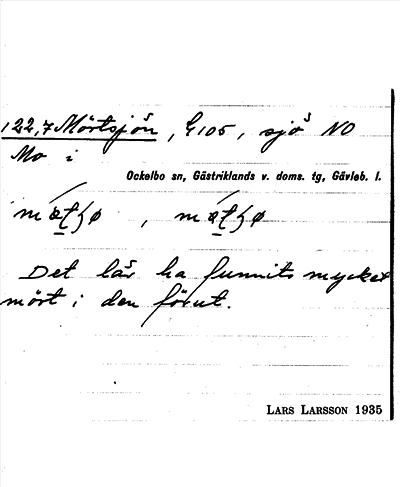 122,7 Mörtsjön, G105, sjö NO
Mo i
Ockelbo sn, Gästriklands v. doms. tg, Gävleb. l.
Det lär ha funnits mycket
mört i den förut.
LARS LARSSON 1935